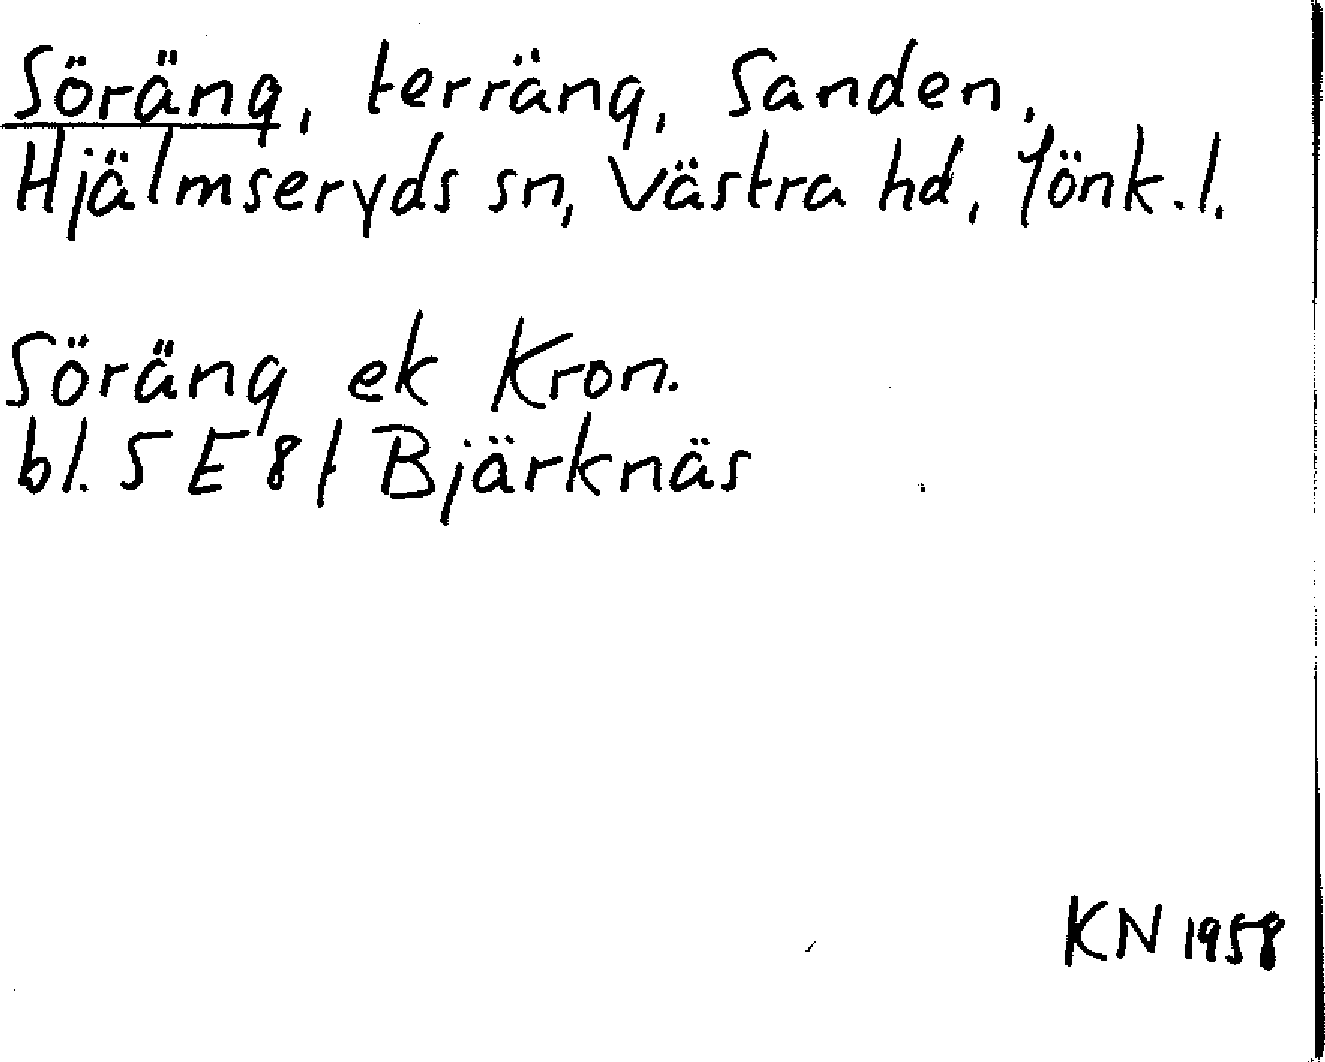 Söräng, terräng, Sanden,
Hjälmseryds sn, Västra hd, Jönk. l.
Söräng ek Kron.
bl. 5 E 8 f Bjärknäs
KN 1958